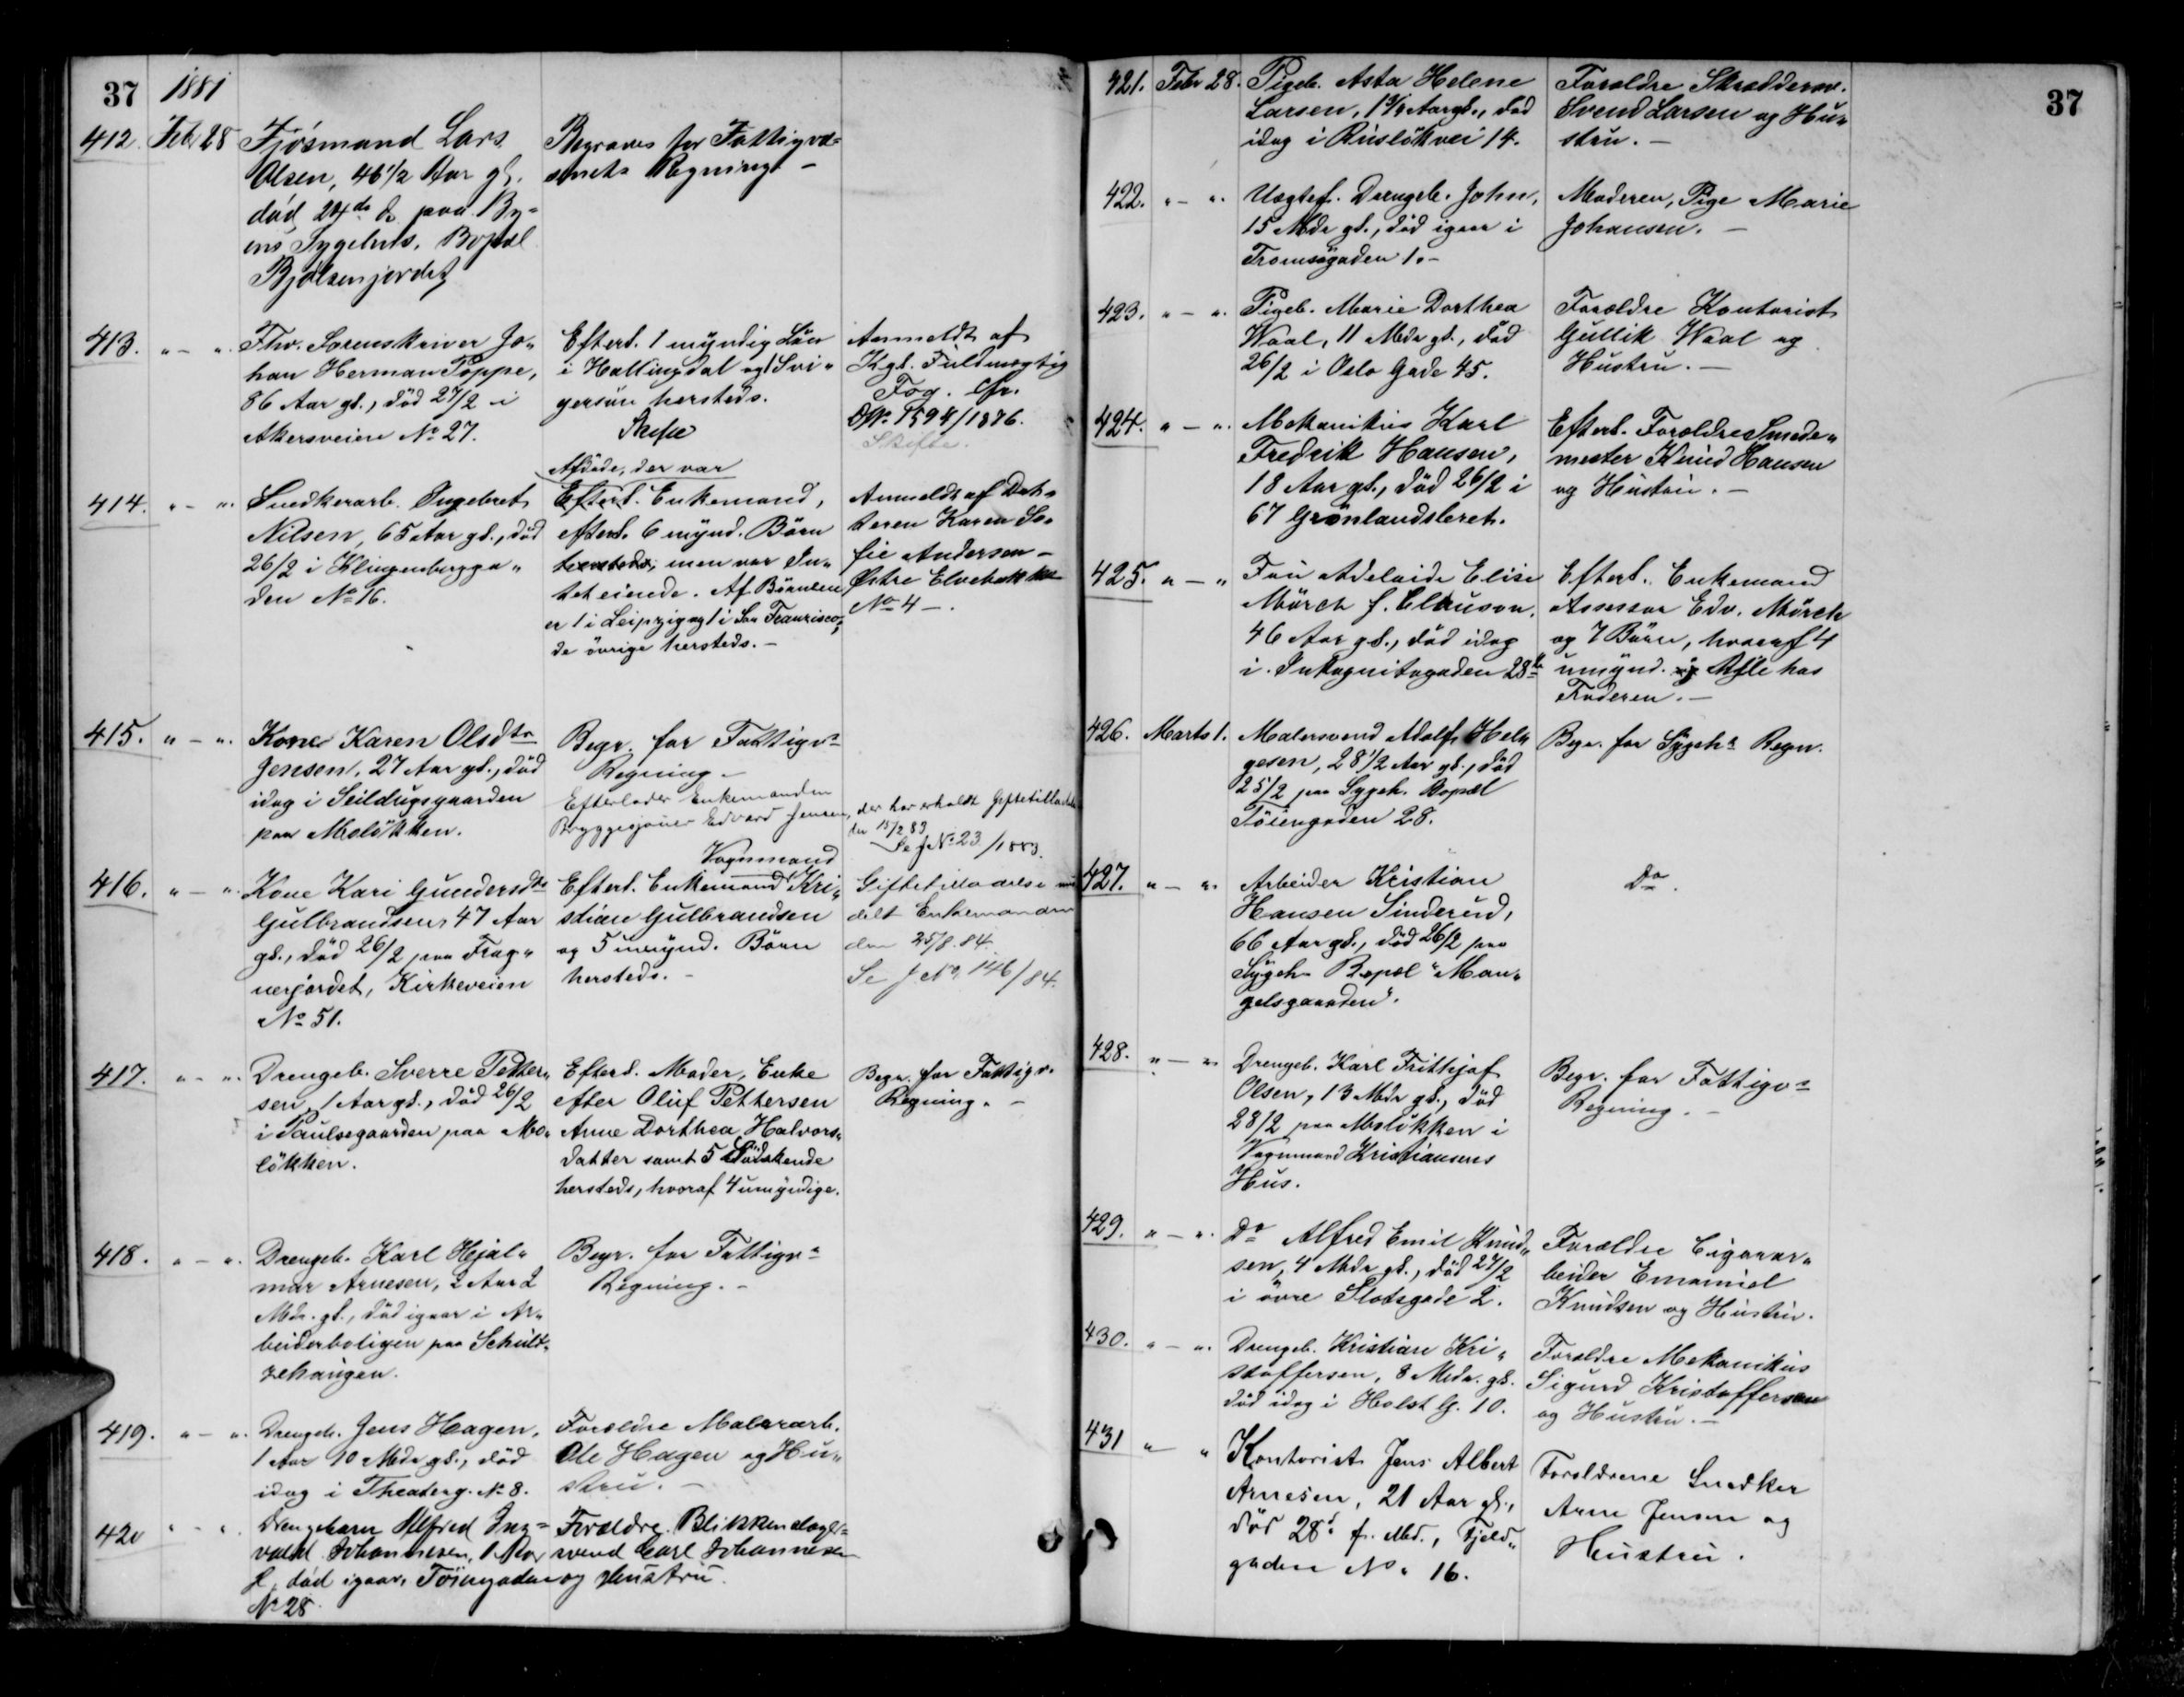 37 1881
412. Febr 28 Fjósmand Lars
Olsen, 46 1/2 Aar gl.
död 24de ds paa By-
ens Sygehus. Bopæl
Bjölsenjordet
Begraves for Fattigvæ-
snets Regning -
413. " - " Fhv. Sorenskriver Jo-
han Herman Poppe,
86 Aar gl., död 27/2 i
Akersveien No 27.
Efterl. 1 myndig Sön
i Hallingdal og 1 Svi-
gersön hersteds.
Skifte
Anmeldt af
Kgl. Fuldmægtig
Fog. Cfr.
DNo 1594/1876.
Skifte.
414. " - " Snedkerarb. Ingebret
Nilsen, 65 Aar gl., död
26/2 i Klingenbergga-
den No 16.
Afdöde, der var
Efterl. Enkemand,
efterl. 6 mynd. Börn
hersteds, men var In-
tet eiende. Af Börnene
er 1 i Leipzig og 1 i San Franzisco,
de övrige hersteds. -
Anmeldt af Dat-
teren Karen So-
fie Andersen -
Østre Elvebakke
No 4 -.
415. " - " Kone Karen Olsdtr
Jensen, 27 Aar gl., död
idag i Seildugsgaarden
paa Meslökken.
Begr. for Fattigvs
Regning -
Efterlader Enkemanden
Bryggesjouer Edvard Jensen, der har erholdt Giftetilladelse
den 15/2 83
Se J No 23/1883.
416. " - " Kone Kari Gundersdtr
Gulbrandsen, 47 Aar
gl., död 26/2 paa Frog-
nerjordet, Kirkeveien
No 51.
Vognmand
Efterl. Enkemand Kri-
stian Gulbrandsen
og 5 umynd. Börn
hersteds. -
Giftetilladelse med-
delt Enkemanden
den 25/8. 84.
Se J No. 146/84.
417. " - " Drengeb. Sverre Petter-
sen, 1 Aar gl., död 26/2
i Paulsegaarden paa Mo-
lökken.
Efterl. Moder, Enke
efter Oluf Pettersen
Anne Dorthea Halvors-
datter samt 5 Södskende
hersteds, hvoraf 4 umyndige.
Begr. for Fattigv.
Regning. -
418. " - " Drengeb. Karl Hjal-
mar Arnesen, 2 Aar 2
Mdr. gl., död igaar i Ar-
beiderboligen paa Schult-
zehaugen.
Begr. for Fattigvs
Regning. -
419. " - " Drengeb. Jens Hagen,
1 Aar 10 Mdr gl., död
idag i Theaterg. No 8.
Forældre Malerarb.
Ole Hagen og Hu-
stru. -
420 " - " Drengebarn Alfred Ing-
vald Johannesen, 1 Aar
gl., död igaar, Töiengaden
No 28.
Forældre Blikkenslager-
svend Carl Johannesen
og Hustru.
37
421. Febr 28. Pigeb. Asta Helene
Larsen, 1 3/4 Aar gl., död
idag i Ruselökvei 14.
Forældre Skrædderm.
Svend Larsen og Hu-
stru. -
422. " - " Uægtef. Drengeb. John,
15 Mdr gl., död igaar i
Tromsögaden 1. -
Moderen, Pige Marie
Johansen. -
423. " - " Pigeb. Marie Dorthea
Waal, 11 Mdr gl., död
26/2 i Oslo Gade 45.
Forældre Kontorist
Gullik Waal og
Hustru. -
424. " - " Mekanikus Karl
Fredrik Hansen,
18 Aar gl., död 26/2 i
67 Grönlandsleret.
Efterl. Forældre Smede-
mester Knud Hansen
og Hustru. -
425. " - " Fru Adelaide Elise
Mörch f. Clauson.
46 Aar gl., död idag
i Inkognitogaden 28 b
Efterl. Enkemand
Assessor Edv. Mörch
og 7 Börn, hvoraf 4
umynd. Alle hos
Faderen. -
426. Marts 1. Malersvend Adolf Hel-
gesen, 28 1/2 Aar gl., död
25/2 paa Sygeh. Bopæl
Töiengaden 28.
Begr. for Sygehs Regn.
427. " - " Arbeider Kristian
Hansen Sinderud,
66 Aar gl., död 26/2 paa
Sygeh. Bopæl "Man-
gelsgaarden".
Do.
428. " - " Drengeb. Karl Frithjof
Olsen, 13 Mdr gl., död
28/2 paa Meslökken i
Vognmand Kristiansens
Hus.
Begr. for Fattigvs
Regning. -
429. " - " Do Alfred Emil Knud-
sen, 4 Mdr gl., död 27/2
i övre Slotsgade 2.
Forældre Cigarar-
beider Emanuel
Knudsen og Hustru.
430. " - " Drengeb. Kristian Kri-
stoffersen, 8 Mdr. gl.
död idag i Holst G. 10.
Forældre Mekanikus
Sigurd Kristoffersen
og Hustru. -
431 " " Kontorist Jens Albert
Arnesen, 21 Aar gl.,
död 28d f. Md., Fjeld-
gaden No. 16.
Forældrene Snedker
Arne Jensen og
Hustru.